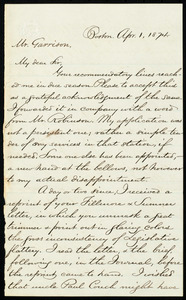 Boston Apr. 1, 1874.
Mr. Garrison,
My dear Sir,
Your recommendatory lines reach-
ed me in due season. Please to accept this
as a grateful acknowledgment of the same.
I forwarded it in company with a word
from Mr. Robinson. My application was
not a persistent one; rather a simple ten-
der of my services in that station, if
needed. Some one else has been appointed,
a new hand at the bellows, not however
to my actual disappointment.
A day or two since, I received a
reprint of your Fillmore & Sumner
letter, in which you unmask a past
trimmer & print out in glaring colors
the gross inconsistency of Legislative
flattery. I read the letter & the brief
following one, in the Journal, before
the reprint came to hand. I wished
that uncle Paul Couch might have